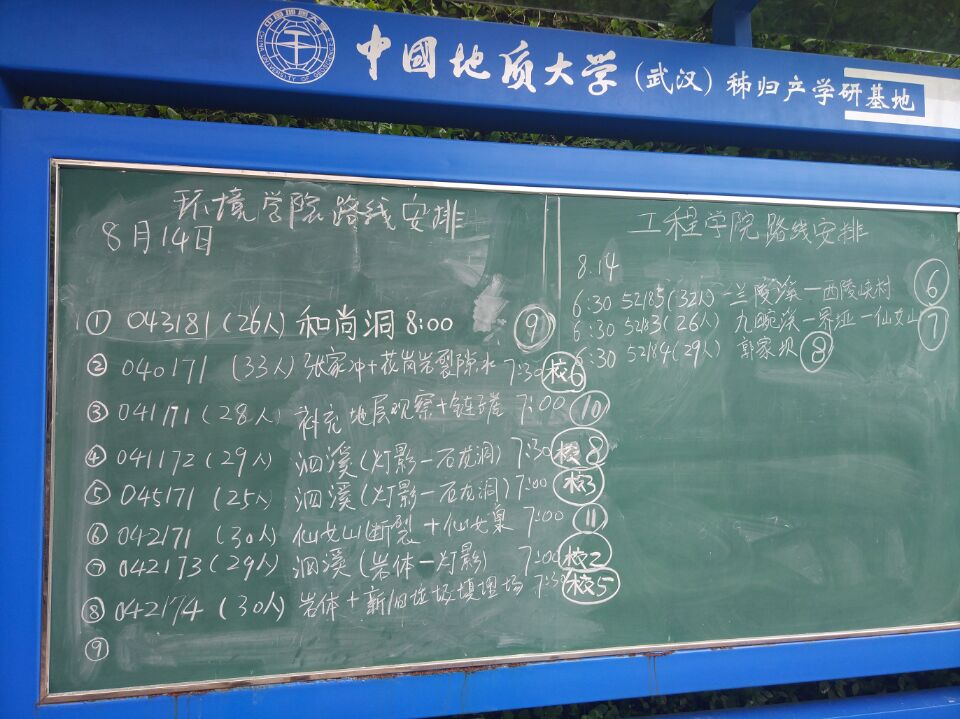 中国地质大学（武汉）秭归产学研基地
环境学院路线安排
8月14日
① 043181（26人）和尚洞 8:00 ⑨
② 040171（33人）张家冲+花岗岩裂隙水 7:30 校6
③ 041171（28人）补充地层观察+链子崖 7:00 ⑩
④ 041172（29人）泗溪（灯影—石龙洞）7:30 校8
⑤ 045171（25人）泗溪（灯影—石龙洞）7:00 校3
⑥ 042171（30人）仙女山断裂+仙女泉 7:00 ⑪
⑦ 042173（29人）泗溪（岩体—灯影）7:00 校2
⑧ 042174（30人）岩体+新旧垃圾填埋场 7:30 校5
⑨
工程学院路线安排
8.14
6:30 52185（32人）兰陵溪—西陵峡村 ⑥
6:30 52183（26人）九畹溪—界垭—仙女山 ⑦
6:30 52184（29人）郭家坝 ⑧